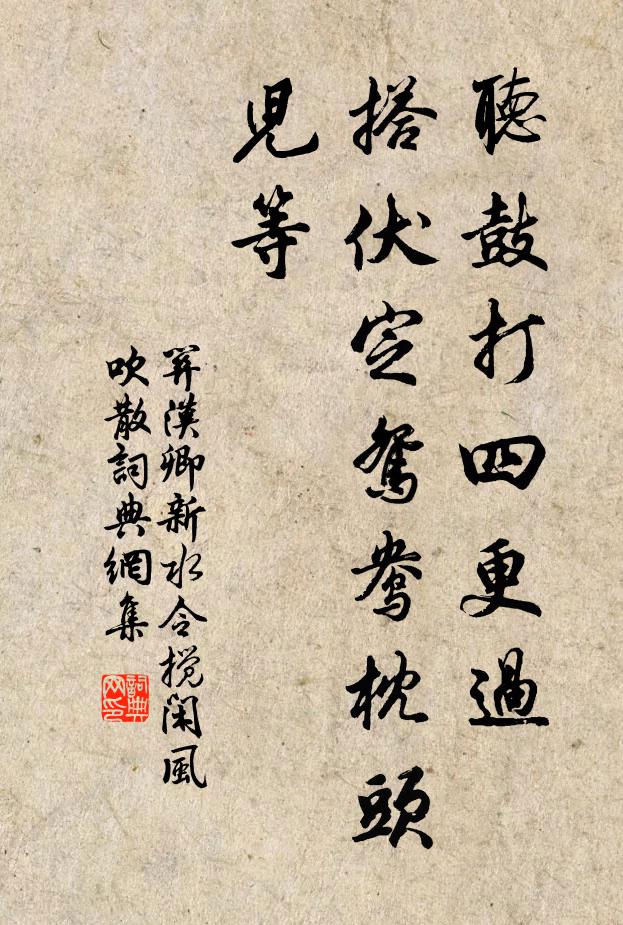 聽鼓打四更過
搭伏定鴛鴦枕頭
兒等
關漢卿新水令攪閑風
吹散詞典網集
詞典
网印